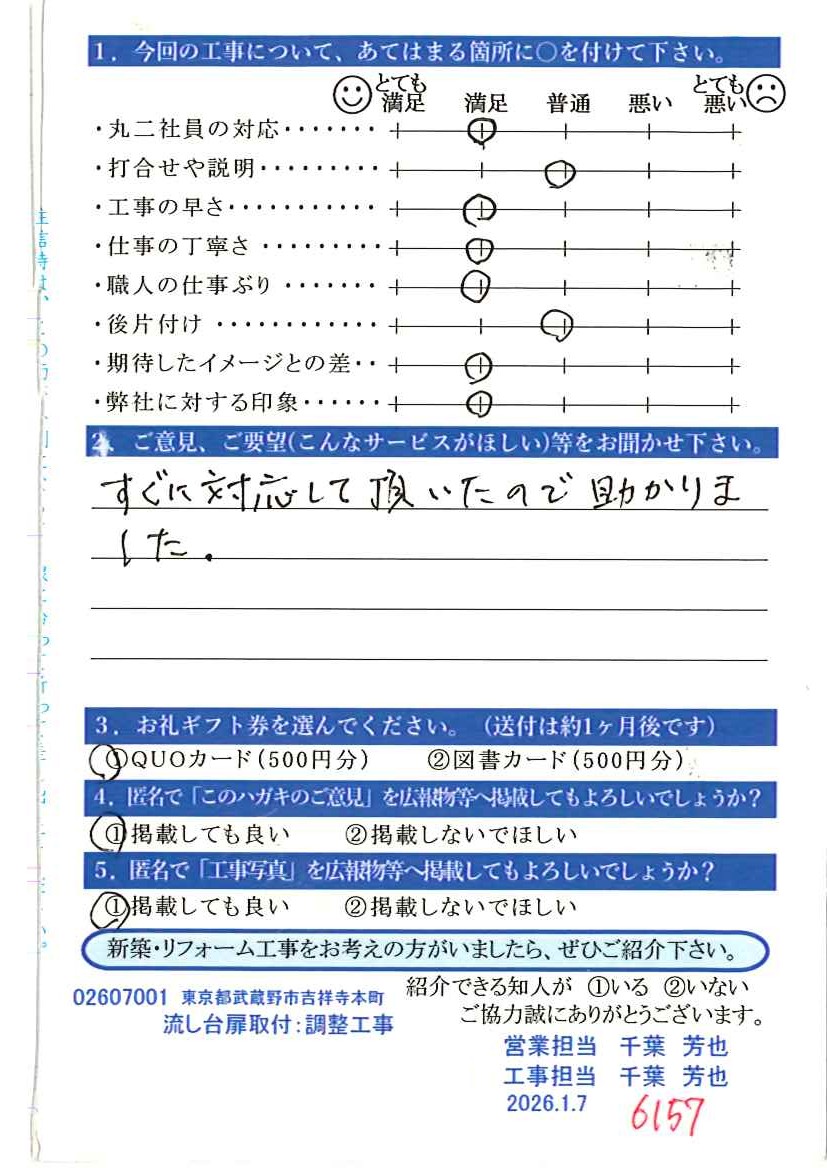 1．今回の工事について、あてはまる箇所に○を付けて下さい。
とても満足 満足 普通 悪い とても悪い
・丸二社員の対応・・・・・・・
・打合せや説明・・・・・・・・・
・工事の早さ・・・・・・・・・・・
・仕事の丁寧さ・・・・・・・・・
・職人の仕事ぶり・・・・・・・
・後片付け・・・・・・・・・・・・
・期待したイメージとの差・・
・弊社に対する印象・・・・・・
2、ご意見、ご要望(こんなサービスがほしい)等をお聞かせ下さい。
すぐに対応して頂いたので助かりま
した.
3．お礼ギフト券を選んでください。（送付は約1ヶ月後です）
①QUOカード(500円分) ②図書カード(500円分)
4．匿名で「このハガキのご意見」を広報物等へ掲載してもよろしいでしょうか?
①掲載しても良い ②掲載しないでほしい
5．匿名で「工事写真」を広報物等へ掲載してもよろしいでしょうか?
①掲載しても良い ②掲載しないでほしい
新築・リフォーム工事をお考えの方がいましたら、ぜひご紹介下さい。
紹介できる知人が ①いる ②いない
02607001 東京都武蔵野市吉祥寺本町
ご協力誠にありがとうございます。
流し台扉取付：調整工事
営業担当 千葉 芳也
工事担当 千葉 芳也
2026.1.7
6157